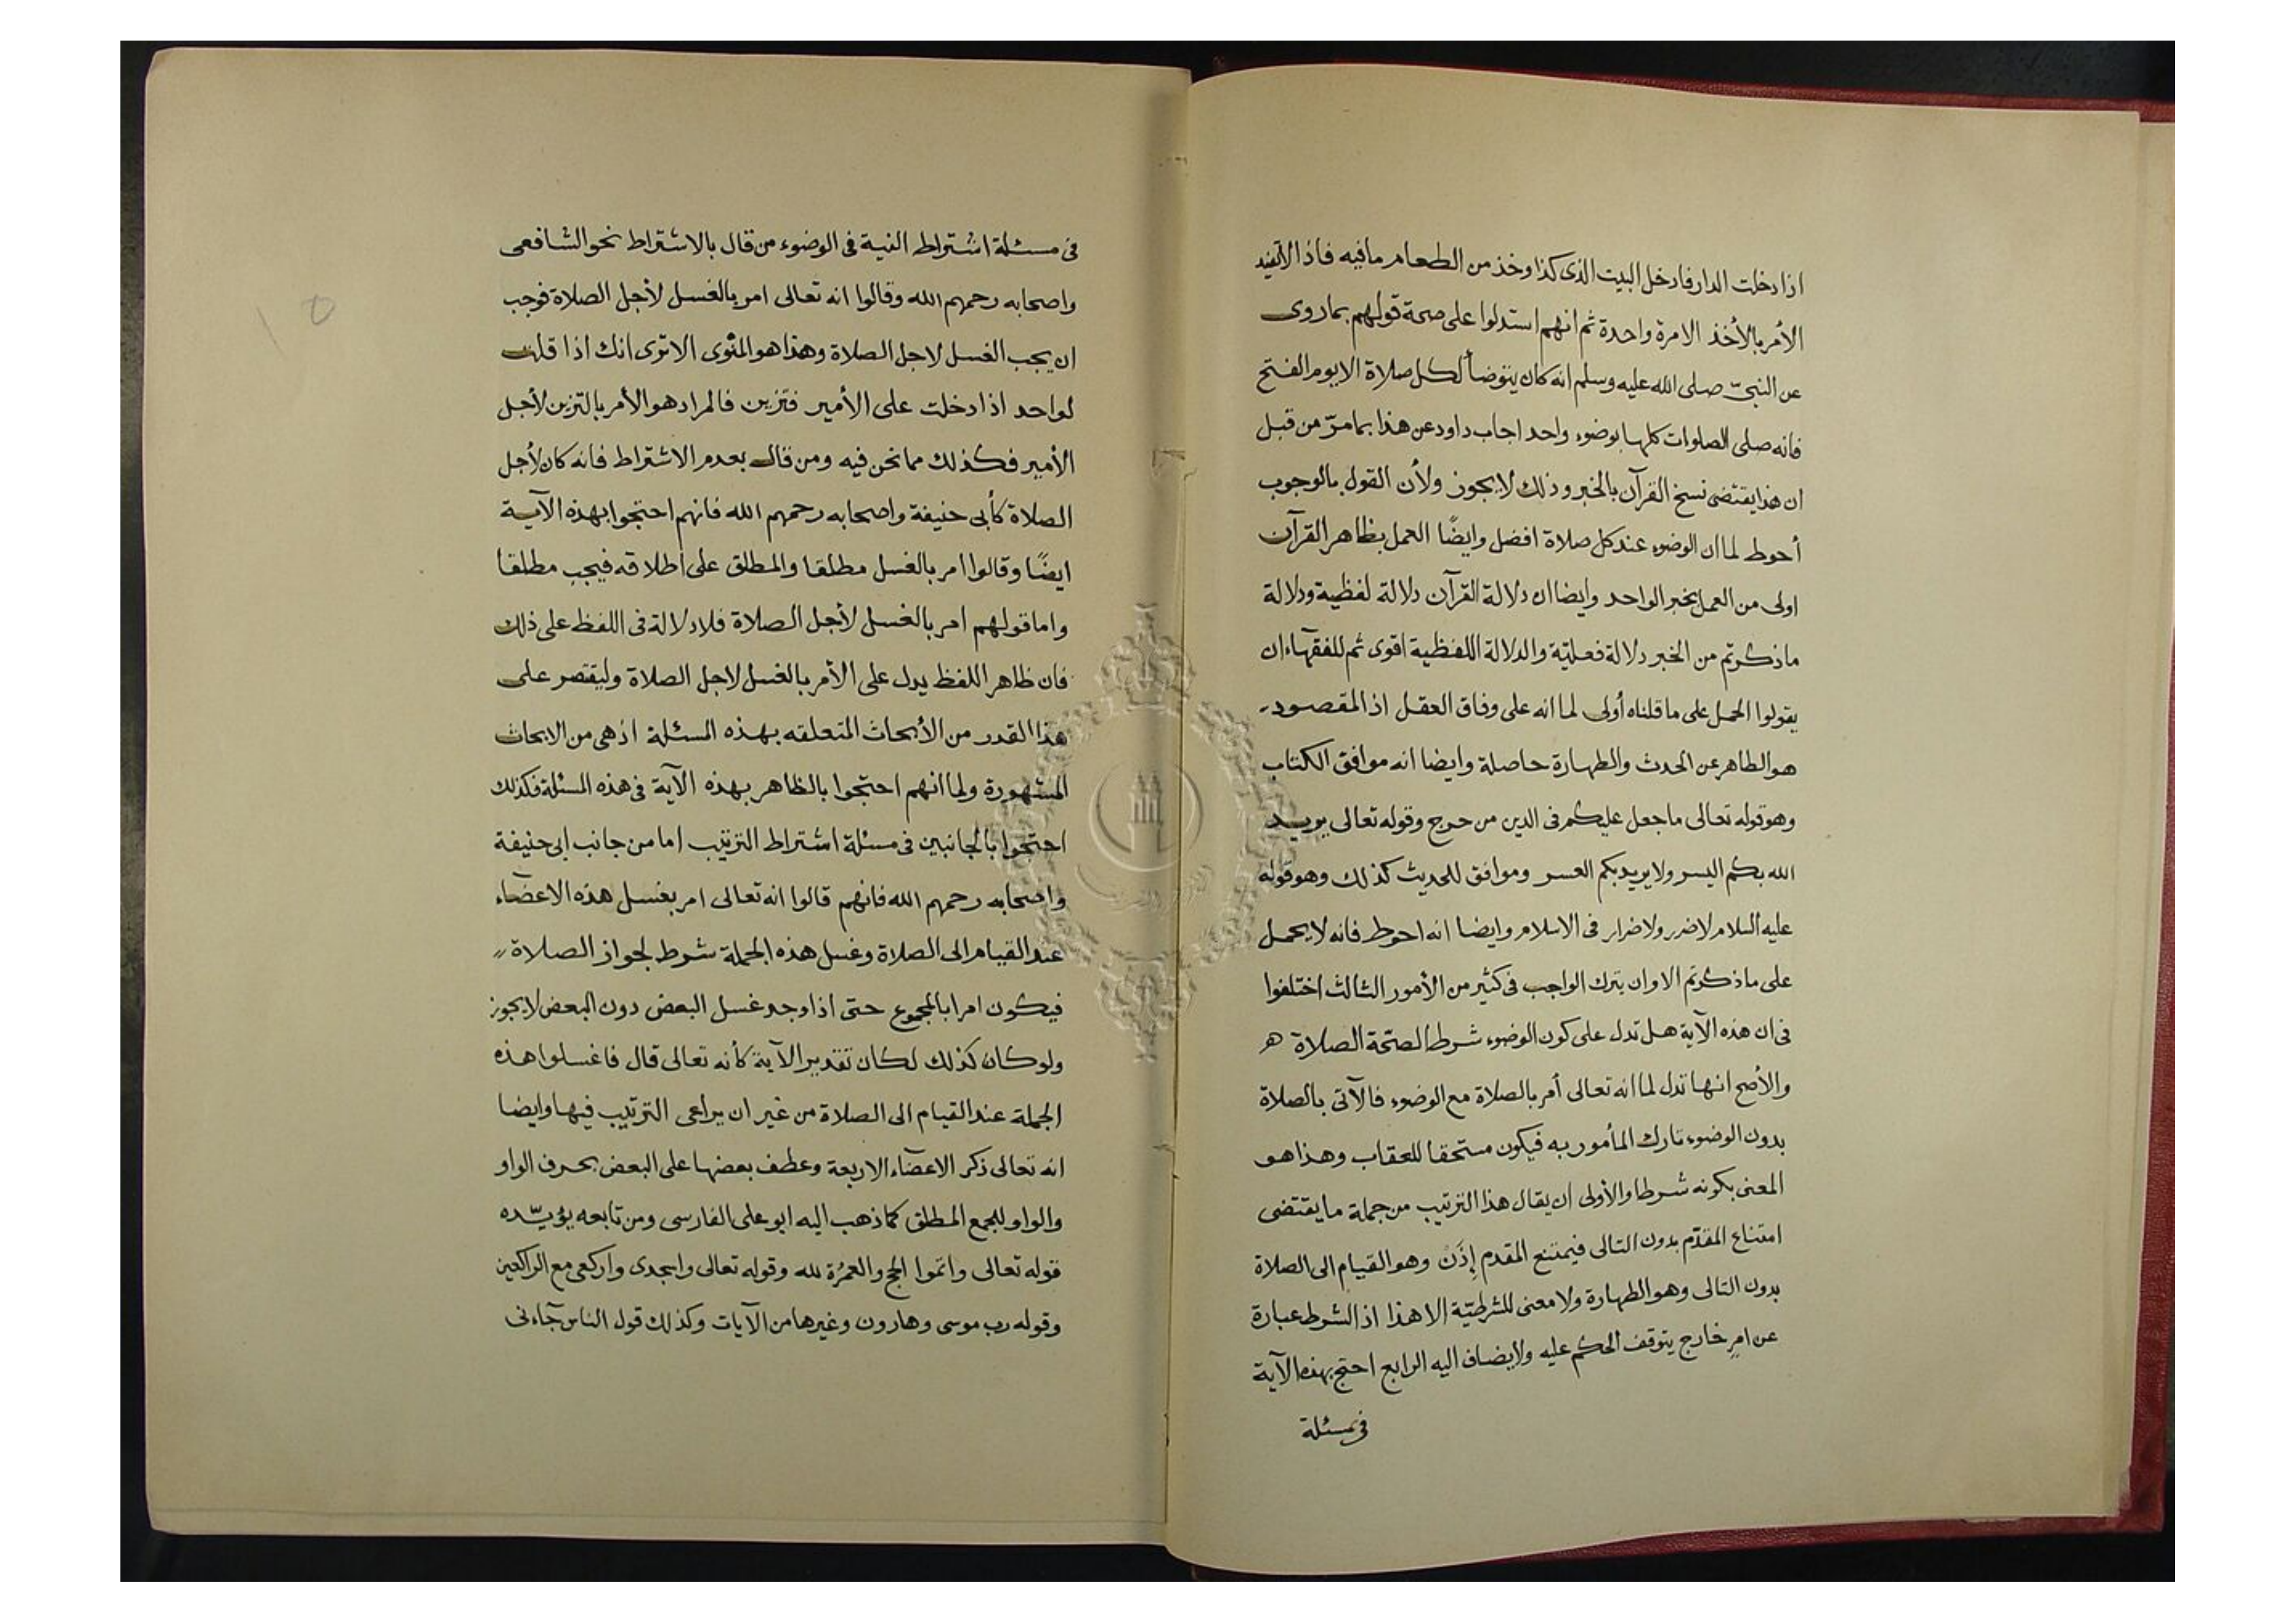 اذا دخلت الدار فادخل البيت الذى كذا وخذ من الطعام ما فيه فاذا لا تفيد
الأمر بالأخذ الا مرة واحدة ثم انهم استدلوا على صحة قولهم بما روى
عن النبىّ صلى الله عليه وسلم انه كان يتوضأ لكل صلاة الا يوم الفتح
فانه صلى الصلوات كلها بوضوء واحد اجاب داود عن هذا بما مرّ من قبل
ان هذا يقتضى نسخ القرآن بالخبر وذلك لا يجوز ولأن القول بالوجوب
أحوط لما ان الوضوء عند كل صلاة افضل وايضًا العمل بظاهر القرآن
اولى من العمل بخبر الواحد وايضا ان دلالة القرآن دلالة لفظية ودلالة
ما ذكرتم من الخبر دلالة فعليّة والدلالة اللفظية اقوى ثم للفقهاء ان
يقولوا الحمل على ما قلناه أولى لما انه على وفاق العقل اذ المقصود
هو الطاهر عن الحدث والطهارة حاصلة وايضا انه موافق الكتاب
وهو قوله تعالى ما جعل عليكم فى الدين من حرج وقوله تعالى يريد
الله بكم اليسر ولا يريد بكم العسر وموافق للحديث كذلك وهو قوله
عليه السلام لا ضرر ولا ضرار فى الاسلام وايضا انه احوط فانه لا يحمل
على ما ذكرتم الا وان يترك الواجب فى كثير من الأمور الثالث اختلفوا
فى ان هذه الآية هل تدل على كون الوضوء شرطا لصحّة الصلاة
والأصح انها تدل لما انه تعالى أمر بالصلاة مع الوضوء فالآتى بالصلاة
بدون الوضوء تارك المأمور به فيكون مستحقا للعقاب وهذا هو
المعنى بكونه شرطا والأولى ان يقال هذا الترتيب من جملة ما يقتضى
امتناع المقدّم بدون التالى فيمتنع المقدم إِذَنْ وهو القيام الى الصلاة
بدون التالى وهو الطهارة ولا معنى للشرطيّة الا هذا اذ الشرط عبارة
عن امرٍ خارج يتوقف الحكم عليه ولا يضاف اليه الرابع احتج بهذه الآية
فى مسئلة
فى مسئلة اشتراط النية فى الوضوء من قال بالاشتراط نحو الشافعى
واصحابه رحمهم الله وقالوا انه تعالى امر بالغسل لأجل الصلاة فوجب
ان يجب الغسل لاجل الصلاة وهذا هو المنوى الا ترى انك اذا قلت
لواحد اذا دخلت على الأمير فتزين فالمراد هو الأمر بالتزين لأجل
الأمير فكذلك مما نحن فيه ومن قال بعدم الاشتراط فانه كان لأجل
الصلاة كأبى حنيفة واصحابه رحمهم الله فانهم احتجوا بهذه الآية
ايضًا وقالوا امر بالغسل مطلقا والمطلق على اطلاقه فيجب مطلقا
واما قولهم امر بالغسل لأجل الصلاة فلا دلالة فى اللفظ على ذلك
فان ظاهر اللفظ يدل على الأمر بالغسل لاجل الصلاة وليقتصر على
هذا القدر من الأبحاث المتعلقه بهذه المسئلة اذ هى من الابحاث
المشهورة ولما انهم احتجوا بالظاهر بهذه الآية فى هذه المسئلة فكذلك
احتجوا بالجانبين فى مسئلة اشتراط الترتيب اما من جانب ابى حنيفة
واصحابه رحمهم الله فانهم قالوا انه تعالى امر بغسل هذه الاعضاء
عند القيام الى الصلاة وغسل هذه الجملة شرط لجواز الصلاة
فيكون امرا بالمجموع حتى اذا وجد غسل البعض دون البعض لا يجوز
ولو كان كذلك لكان تقدير الآية كأنه تعالى قال فاغسلوا هذه
الجملة عند القيام الى الصلاة من غير ان يراعى الترتيب فيها وايضا
انه تعالى ذكر الاعضاء الاربعة وعطف بعضها على البعض بحرف الواو
والواو للجمع المطلق كما ذهب اليه ابو على الفارسى ومن تابعه يؤيّده
قوله تعالى واتموا الحج والعمرُة لله وقوله تعالى واسجدى واركعى مع الراكعين
وقوله رب موسى وهارون وغيرها من الآيات وكذلك قول الناس جآءنى